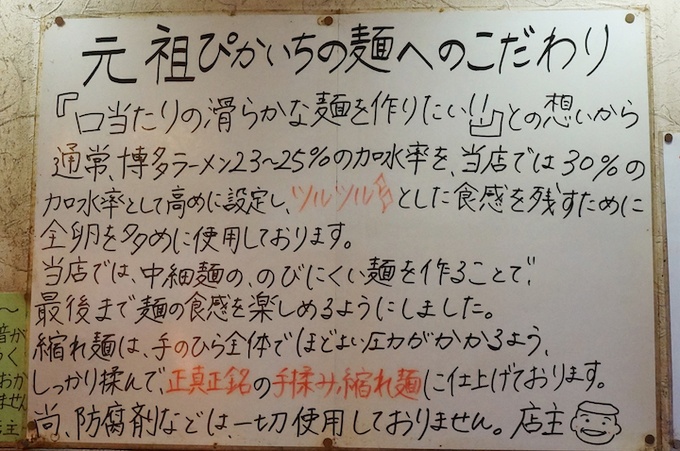 元祖ぴかいちの麺へのこだわり
『口当たりの滑らかな麺を作りたい!!』との想いから
通常、博多ラーメン23~25%の加水率を、当店では30%の
加水率として高めに設定し、ツルツルとした食感を残すために
全卵を多めに使用しております。
当店では、中細麺の、のびにくい麺を作ることで、
最後まで麺の食感を楽しめるようにしました。
縮れ麺は、手のひら全体でほどよい圧力がかかるよう、
しっかり揉んで、正真正銘の手揉み縮れ麺に仕上げております。
尚、防腐剤などは、一切使用しておりません。店主